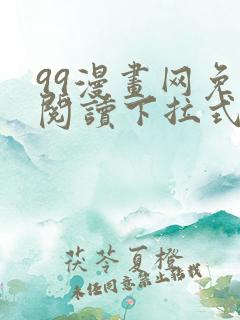 99漫畫网免
閱讀下拉式
茯苓夏橙
未经同意禁止转载